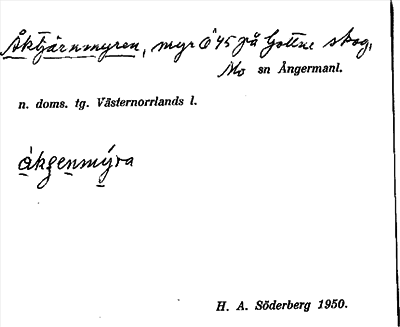 Åktjärnmyren, myr Ö 45 på Gottne skog,
Mo sn Ångermanl.
n. doms. tg. Västernorrlands l.
åkʒenmýra
H. A. Söderberg 1950.